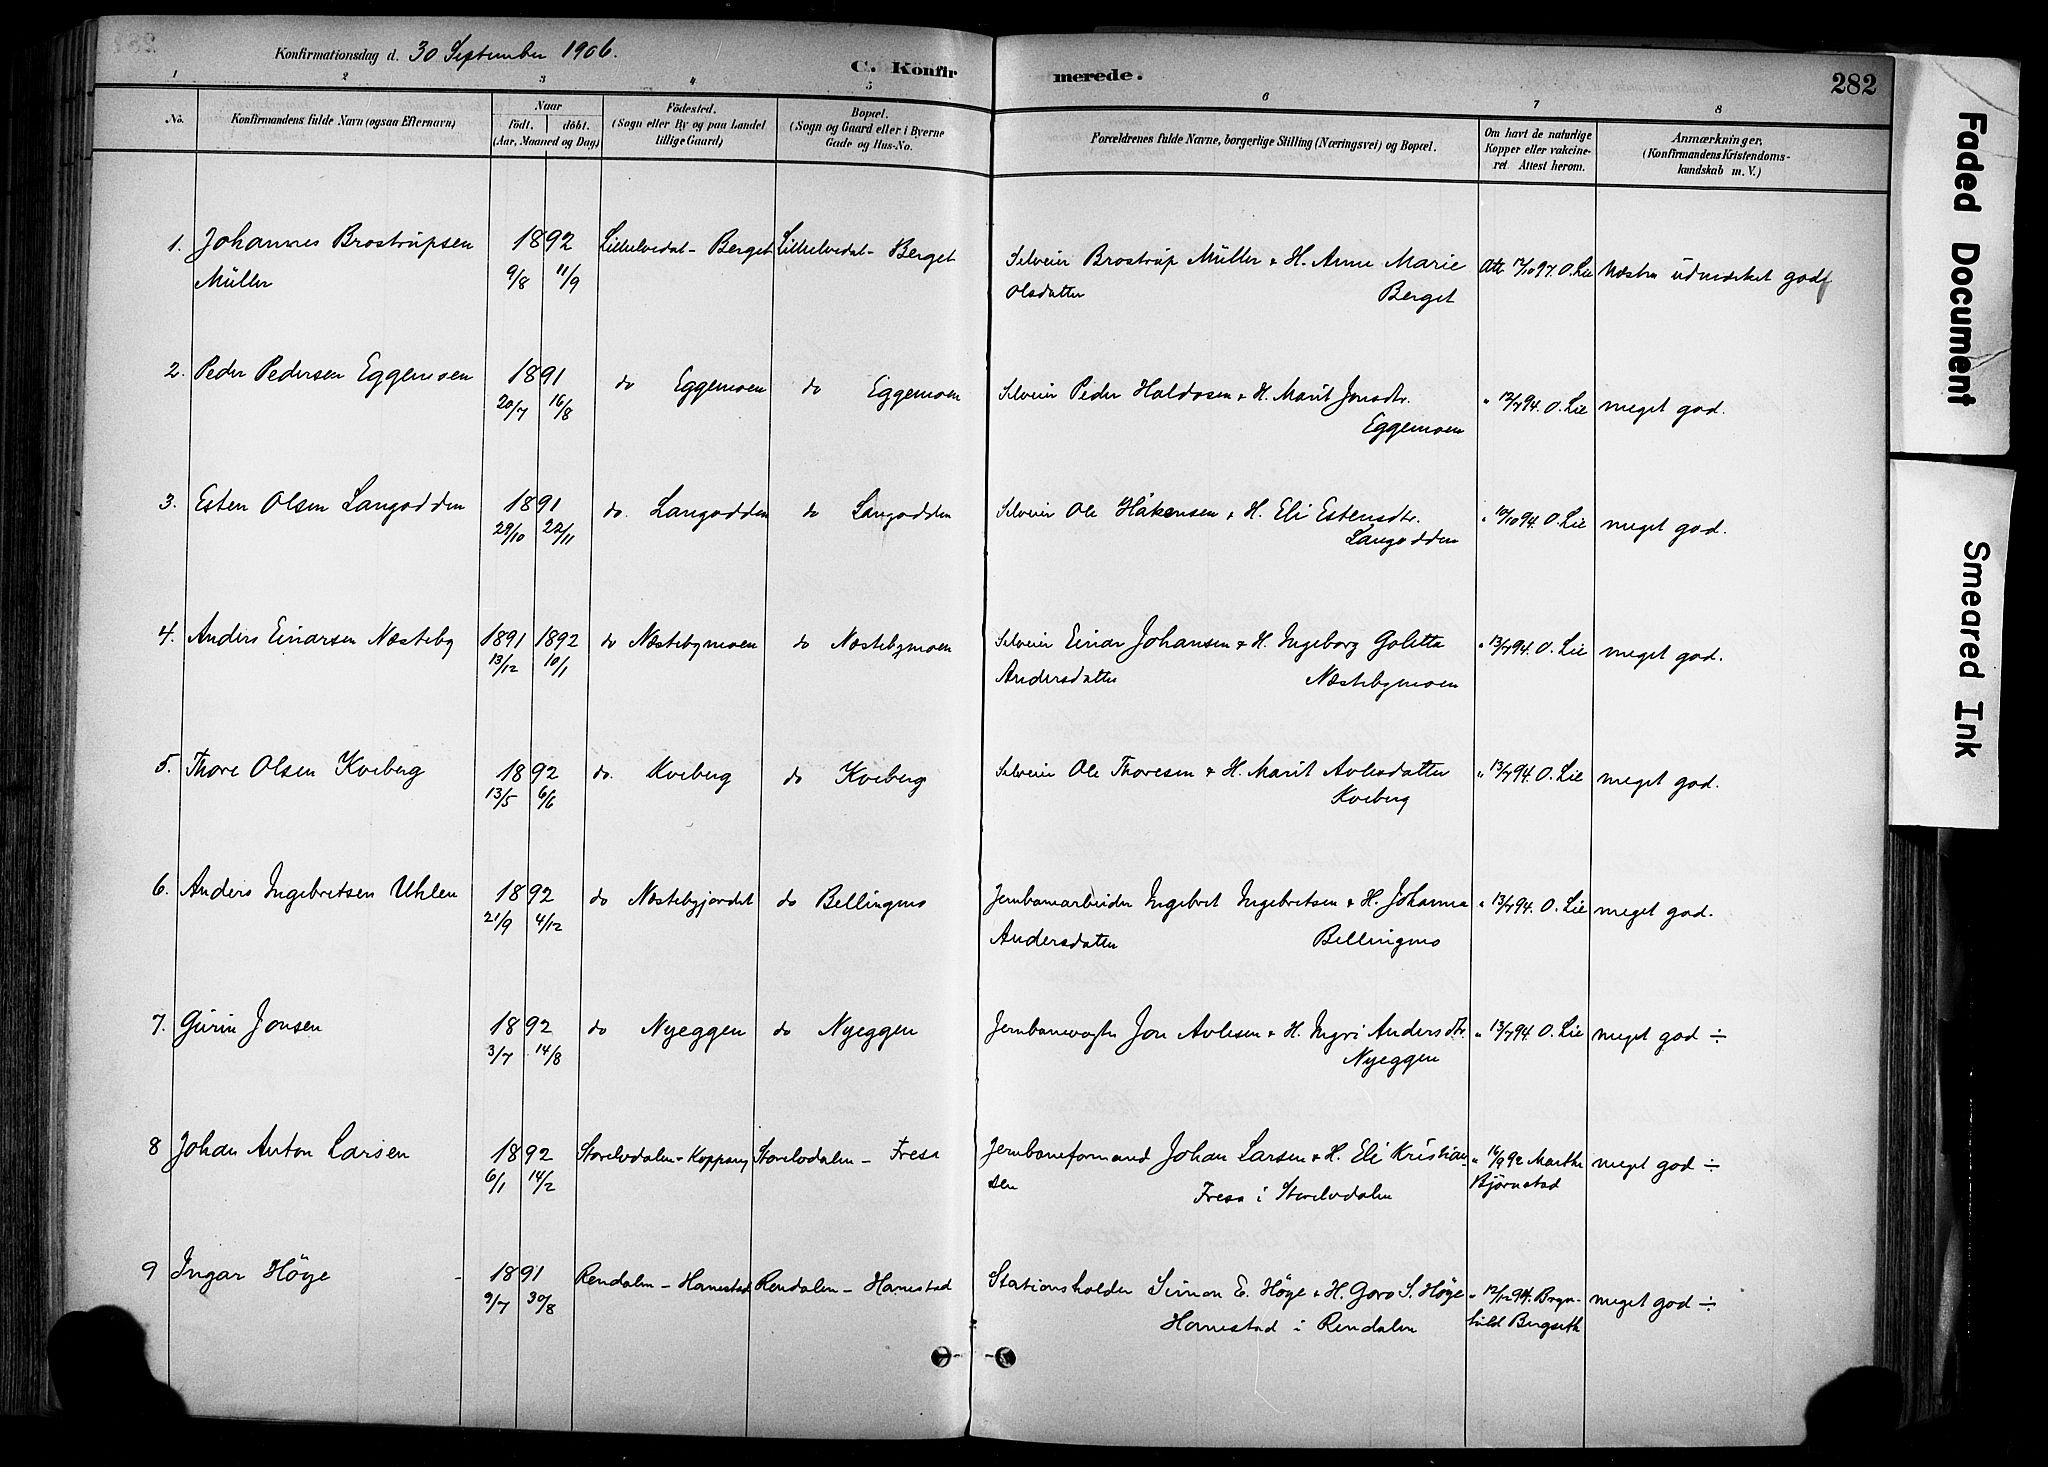 Konfirmationsdag d. 30 September 1906.
C. Konfirmerede.
282
1 2 3 4 5 6 7 8
No.
Konfirmandens fulde Navn (ogsaa Efternavn)
Naar
födt. döbt.
(Aar, Maaned og Dag)
Födested.
(Sogn eller By og paa Landet
tillige Gaard)
Bopæl.
(Sogn og Gaard eller i Byerne
Gade og Hus-No.
Forældrenes fulde Navne, borgerlige Stilling (Næringsvei) og Bopæl.
Om havt de naturlige
Kopper eller vakcine-
ret Attest herom.
Anmærkninger.
(Konfirmandens Kristendoms-
kundskab m. V.)
1. Johannes Brostrupsen 1892 Lilleelvedal - Berget Lilleelvedal - Berget Selveier Brostrup Müller & H. Anne Marie Att. 12/10 97. O. Lie Næsten udmerket godt
Müller 9/8 11/9 Olsdatter Berget
2. Peder Pedersen Eggemoen 1891 do Eggemoen do Eggemoen Selveier Peder Haldosen & H. Marit Jonsdtr. " 12/7 94. O. Lie meget god.
20/7 16/8 Eggemoen
3. Esten Olsen Langodden 1891 do. Langodden do Langodden Selveier Ole Håkensen & H. Eli Estensdtr. " 10/10 94. O. Lie meget god.
29/10 22/11 Langodden
4. Anders Einarsen Næsteby 1891 1892 do Næstebymoen do Næstebymoen Selveier Einar Johansen & H. Ingeborg Goletta " 13/7 94. O. Lie meget god.
13/12 10/1 Andersdatter Næstebymoen
5. Thore Olsen Kveberg 1892 do. Kveberg do Kveberg Selveier Ole Thoresen & H. Marit Avlesdatter " 13/7 94. O. Lie meget god.
13/5 6/6 Kveberg
6. Anders Ingebretsen Uhlen 1892 do Næstebyjordet do Bellingmo Jernbanearbeider Ingebret Ingebretsen & H. Johanna " 13/7 94. O. Lie meget god.
21/9 4/12 Andersdatter Bellingmo
7. Gürin Jonsen 1892 do Nyeggen do Nyeggen Jernbanevogter Jon Avlesen & H. Ingri Andersdtr. " 13/7 94. O. Lie meget god ÷
3/7 14/8 Nyeggen
8 Johan Anton Larsen 1892 Storelvdalen - Koppang Storelvdalen - Fresa Jernbaneformand Johan Larsen & H. Eli Kristian- " 16/9 92 Marthe meget god ÷
6/1 14/2 sen Fresa i Storelvdalen Bjørnstad
9 Ingar Höye 1891 Rendalen - Hanestad Rendalen - Hanestad Stationsholder Simon E. Höye & H. Goro S. Höye " 12/12 94. Bryn- meget god ÷
9/7 30/8 Hanestad i Rendalen hild Bergseth
Faded Document
Smeared Ink